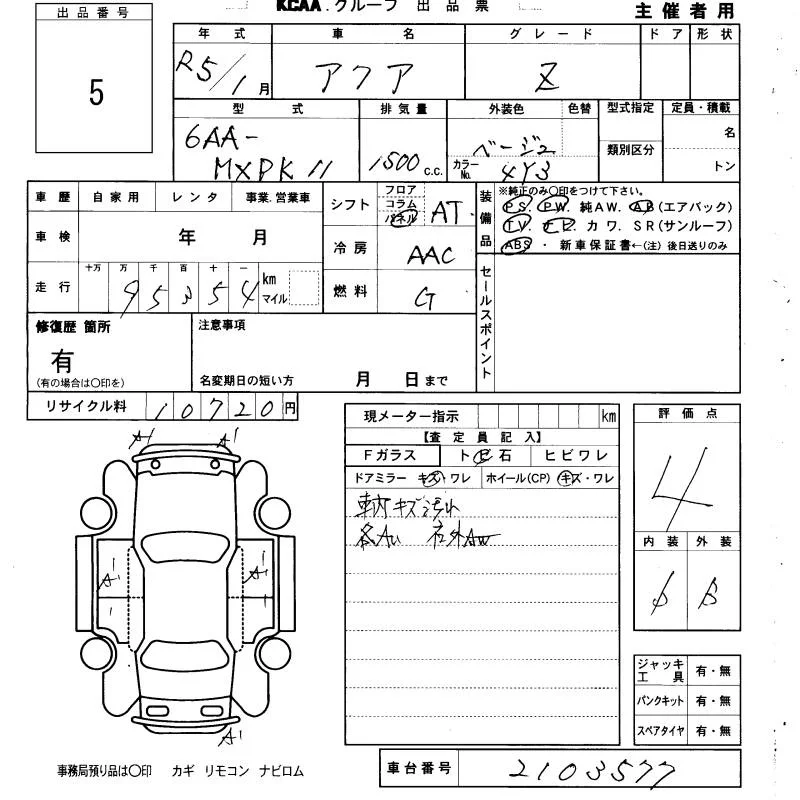 出品番号
5
KCAA.グループ 出品票
主催者用
年式 車名 グレード ドア 形状
R5/1月 アクア Z
型式 排気量 外装色 色替 型式指定 定員・積載
6AA-
MXPK11
1500 c.c.
ベージュ
カラーNo. 4Y3
類別区分
名
トン
車歴 自家用 レンタ 事業.営業車
車検 年 月
走行 十万 万 千 百 十 一
95354 km マイル
シフト フロア コラム パネル AT
冷房 AAC
燃料 G
装備品
※純正のみ〇印をつけて下さい。
PS. PW. 純AW. AB(エアバック)
TV. ナビ. カワ. SR(サンルーフ)
ABS・ 新車保証書←(注) 後日送りのみ
セールスポイント
修復歴 箇所
有
(有の場合は〇印を)
注意事項
名変期日の短い方 月 日まで
リサイクル料 10720円
現メーター指示 km
【査定員記入】
Fガラス トビ石 ヒビワレ
ドアミラー キズ・ワレ ホイール(CP) キズ・ワレ
車内キズ汚れ
各AU 社外AW
評価点
4
内装 外装
B
A1 A1
A1 A1
A1
ジャッキ工具 有・無
パンクキット 有・無
スペアタイヤ 有・無
事務局預り品は〇印 カギ リモコン ナビロム
車台番号 2103577